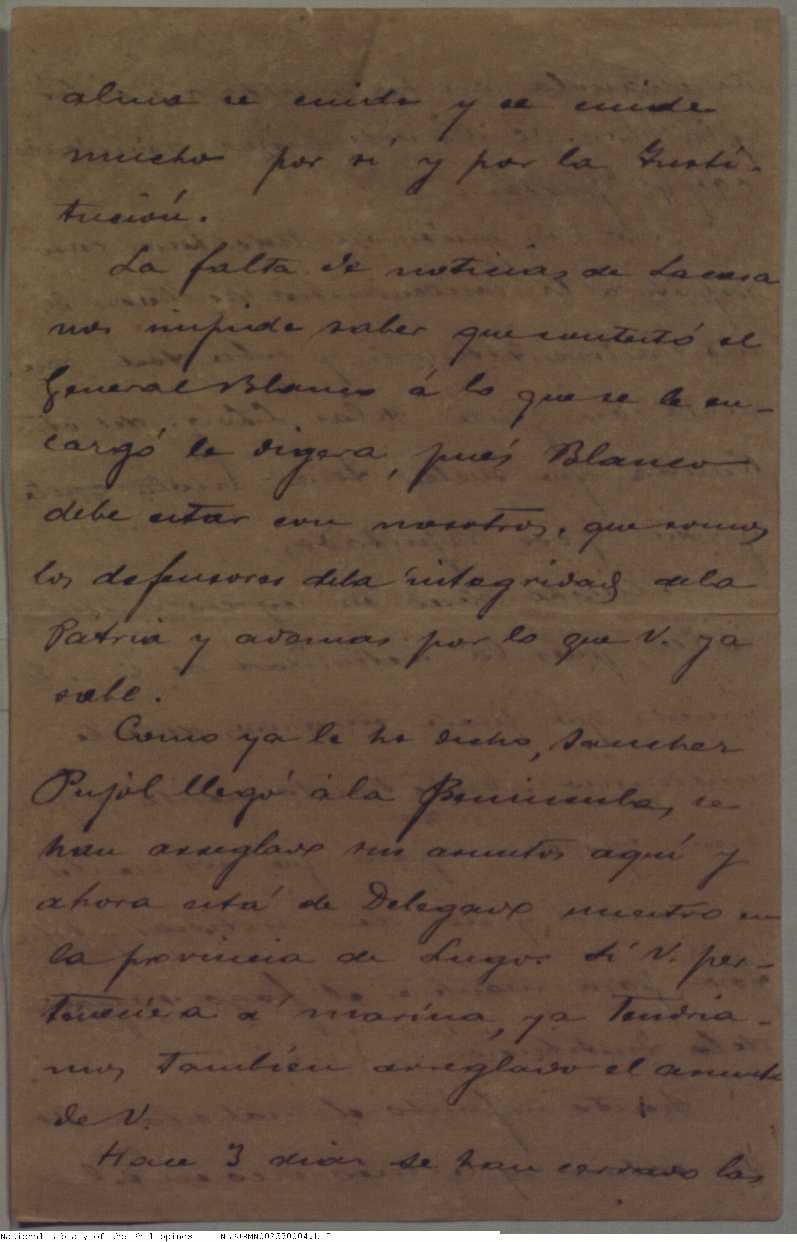 alma se cuida y se cuide
mucho por sí y por la Insti-
tución.
La falta de noticias de Lacasa
nos impide saber que contestó el
General Blanco á lo que se le en-
cargó le digera, pués Blanco
debe estar con nosotros, que somos
los defensores dela integridad dela
Pátria y ademas por lo que V. ya
sabe.
Como ya le he dicho, Sanchez
Pujól llegó á la Peninsula, se
han arreglado sus asuntos aquí y
ahora está de Delegado nuestro en
la provincia de Lugo. Si V. per-
teneciera á marina, ya tendria-
mos tambien arreglado el asunto
de V.
Hace 3 dias se han cerrado las
National Library of the Philippines